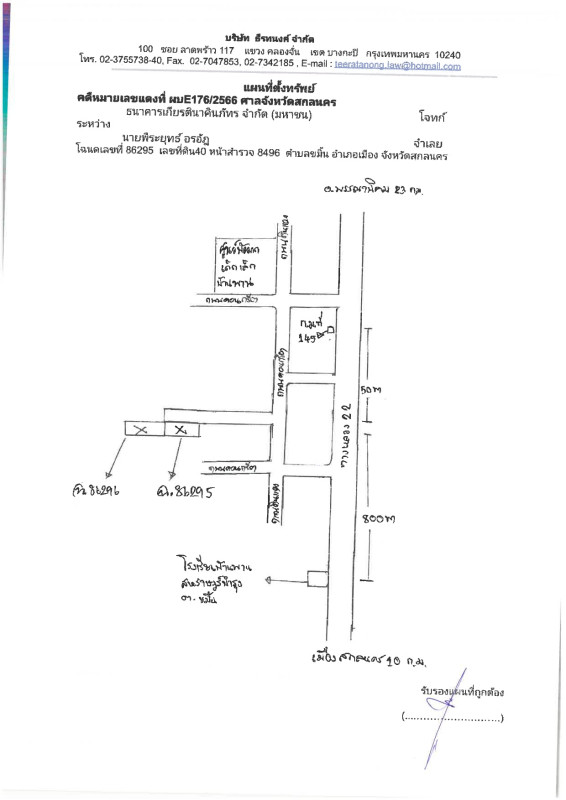 บริษัท ธีรทนงค์ จำกัด
100 ซอย ลาดพร้าว 117 แขวง คลองจั่น เขต บางกะปิ กรุงเทพมหานคร 10240
โทร. 02-3755738-40, Fax. 02-7047853, 02-7342185 , E-mail : teeratanong.law@hotmail.com
แผนที่ตั้งทรัพย์
คดีหมายเลขแดงที่ ผบE176/2566 ศาลจังหวัดสกลนคร
ธนาคารเกียรตินาคินภัทร จำกัด (มหาชน) โจทก์
ระหว่าง
นายพีระยุทธ์ อรอัฎ จำเลย
โฉนดเลขที่ 86295 เลขที่ดิน40 หน้าสำรวจ 8496 ตำบลขมิ้น อำเภอเมือง จังหวัดสกลนคร
อ.พรรณานิคม 23 กม.
ศูนย์พัฒนา
เด็กเล็ก
บ้านพาน
ถนนคอนกรีต
ก.ม.ที่
145
ถนนคอนกรีต
50 m
ทางหลวง 22
ถนนคอนกรีต
ฉ.86296
ฉ.86295
800 m
โรงเรียนบ้านพาน
สหราษฎร์บำรุง
ต.ขมิ้น
เมืองสกลนคร 10 ก.ม.
รับรองแผนที่ถูกต้อง
(............................)